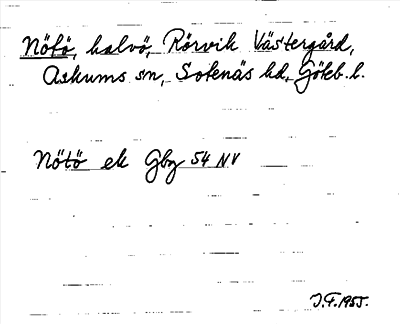 Nötö, halvö, Rörvik Västergård,
Askums sn, Sotenäs hd, Göteb. l.
Nötö ek Gbg 54 NV
J.F. 1955.